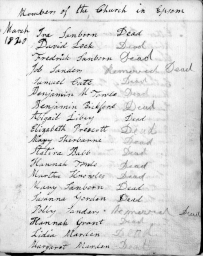 Members of the Church in Epsom
March Ira Sanborn Dead
1820 David Lock Dead
Fredrik Sanborn Dead
Removed Dead
Samuel Cate Dead
Benjamin M Towes Dead
Benjamin Bickford Dead
Abigail Livey Dead
Elizabeth Prescott Dead
Mary Sherburne Dead
Dead
Hannah Towes Dead
Martha Knowles Dead
Mary Sanborn Dead
Susanna Gordon Dead
Polly Removed Dead
Hannah Grant Dead
Lidia Marden Dead
Margaret Marden Dead